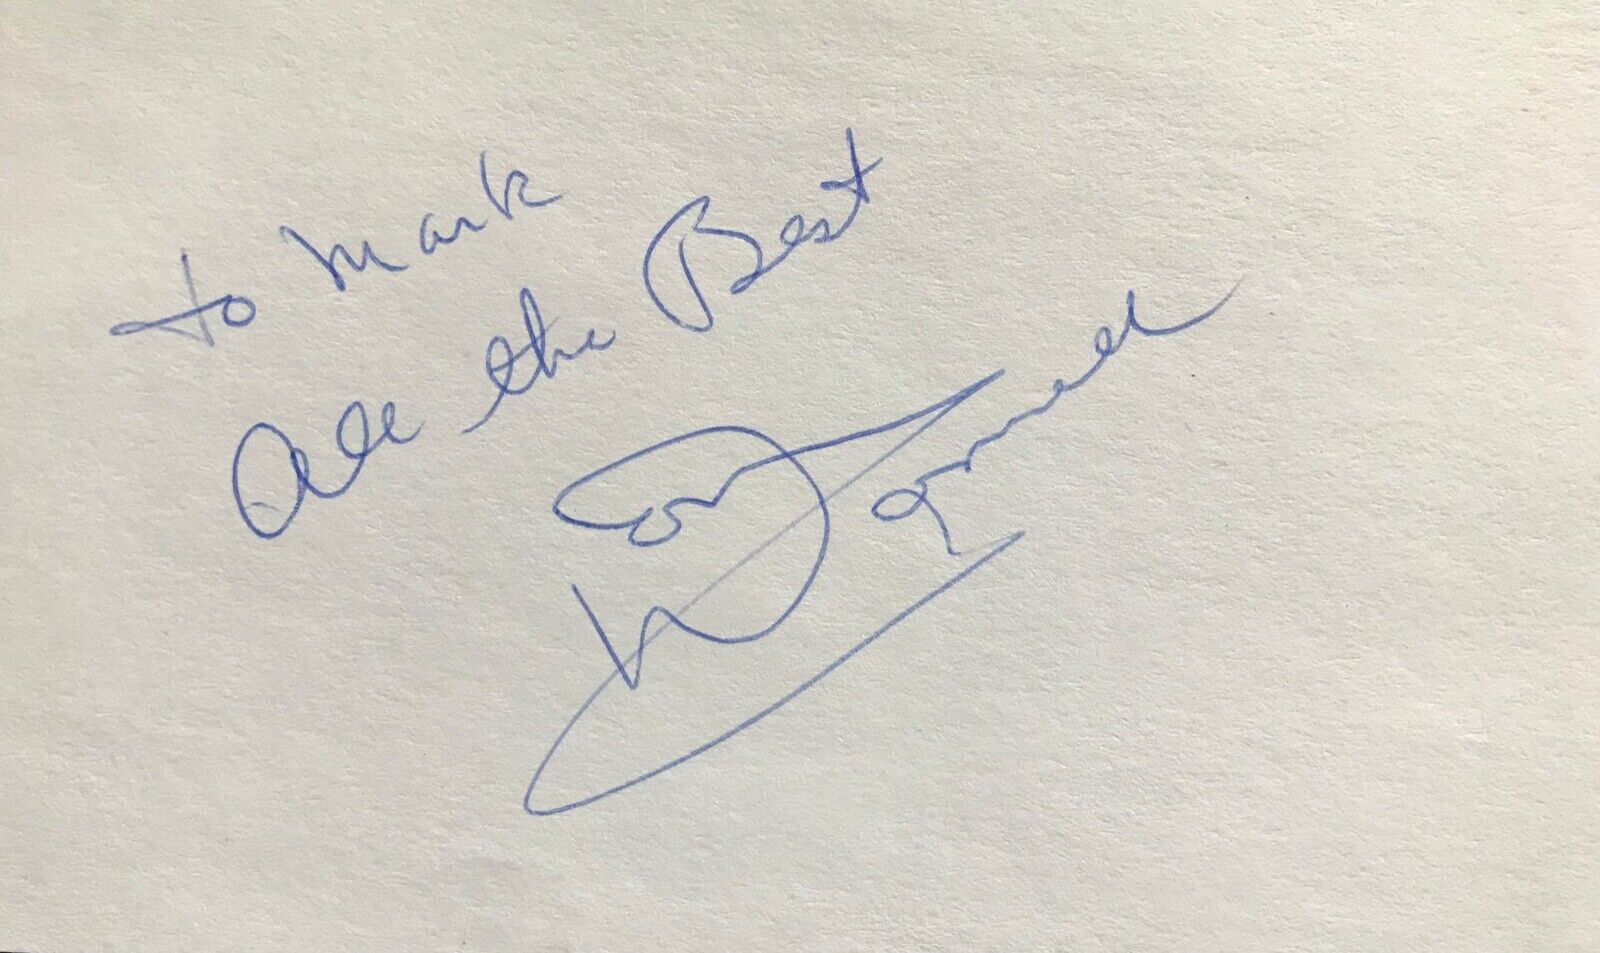 to Mark
All the Best
Don